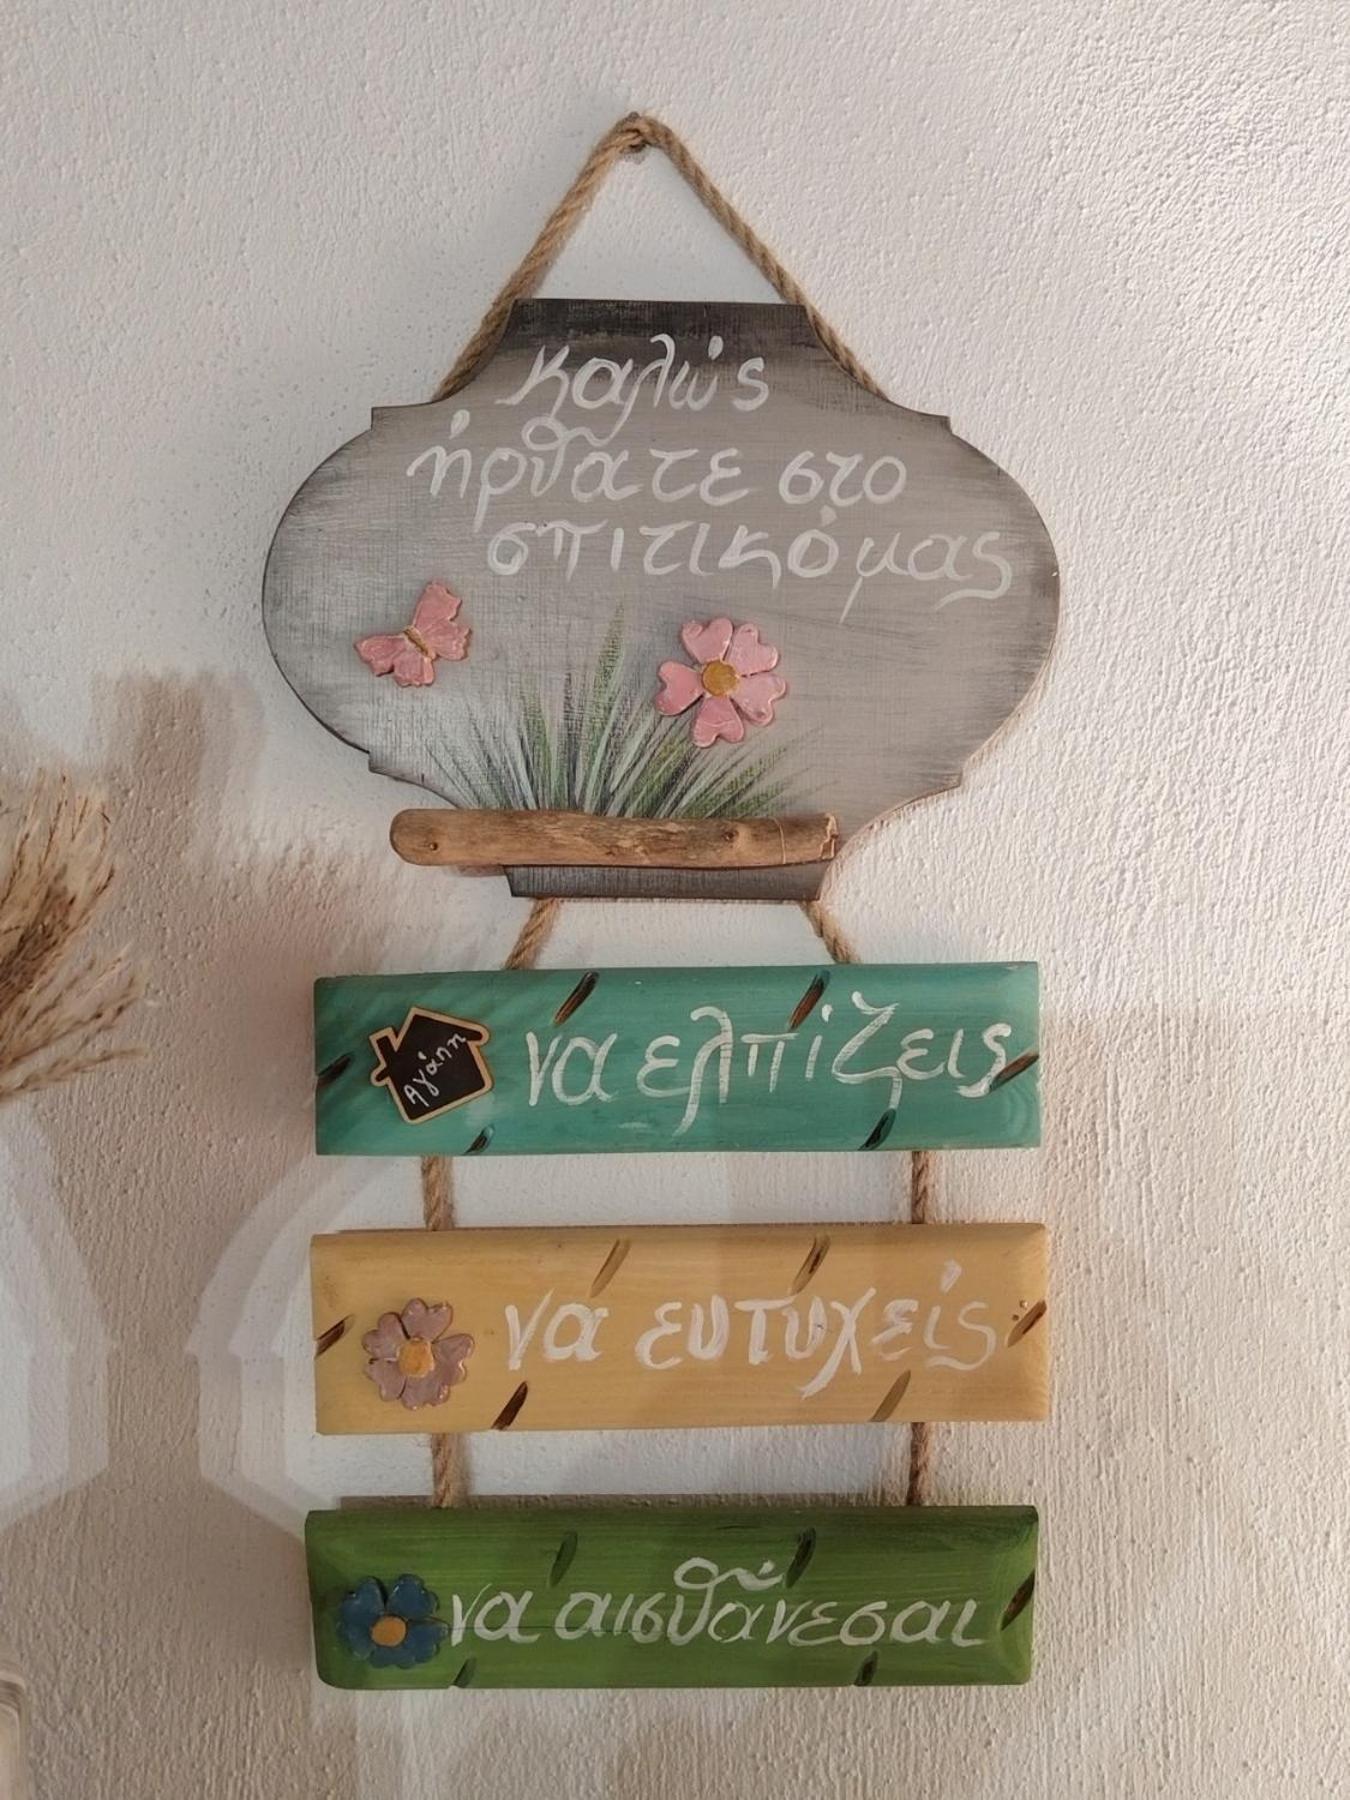 καλώς
ήρθατε στο
σπιτικό μας
Αγάπη
να ελπίζεις
να ευτυχείς
να αισθάνεσαι